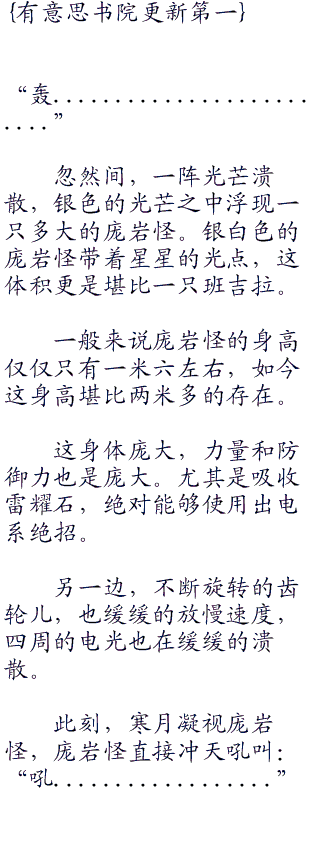 {有意思书院更新第一}
“轰.....................
....”
忽然间，一阵光芒溃
散，银色的光芒之中浮现一
只多大的庞岩怪。银白色的
庞岩怪带着星星的光点，这
体积更是堪比一只班吉拉。
一般来说庞岩怪的身高
仅仅只有一米六左右，如今
这身高堪比两米多的存在。
这身体庞大，力量和防
御力也是庞大。尤其是吸收
雷耀石，绝对能够使用出电
系绝招。
另一边，不断旋转的齿
轮儿，也缓缓的放慢速度，
四周的电光也在缓缓的溃
散。
此刻，寒月凝视庞岩
怪，庞岩怪直接冲天吼叫：
“吼..................”